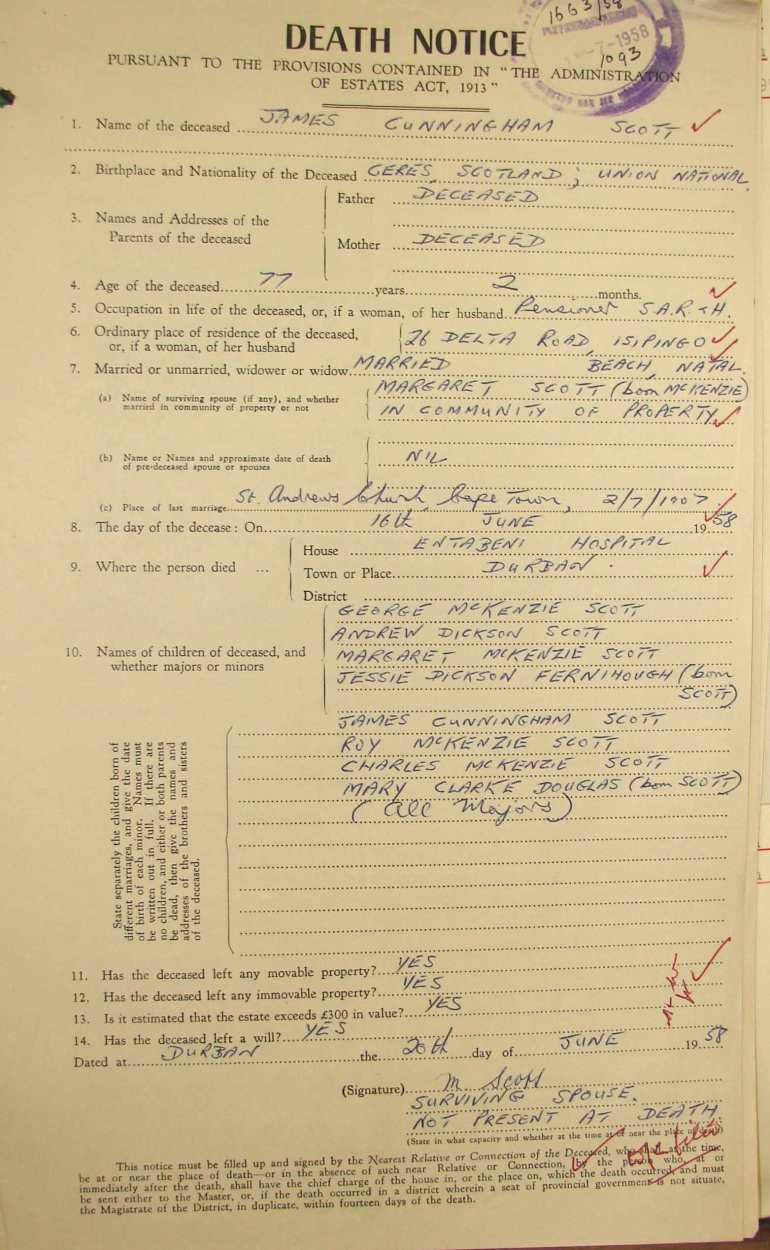 1663/58
-7-1958
1093
DEATH NOTICE
PURSUANT TO THE PROVISIONS CONTAINED IN "THE ADMINISTRATION
OF ESTATES ACT, 1913"
1. Name of the deceased JAMES CUNNINGHAM SCOTT
2. Birthplace and Nationality of the Deceased CERES, SCOTLAND; UNION NATIONAL
3. Names and Addresses of the Parents of the deceased
Father DECEASED
Mother DECEASED
4. Age of the deceased 77 years 2 months.
5. Occupation in life of the deceased, or, if a woman, of her husband Pensioner S.A.R. & H.
6. Ordinary place of residence of the deceased, 26 DELTA ROAD, ISIPINGO
or, if a woman, of her husband
7. Married or unmarried, widower or widow MARRIED BEACH, NATAL.
(a) Name of surviving spouse (if any), and whether MARGARET SCOTT (born MCKENZIE)
married in community of property or not IN COMMUNITY OF PROPERTY
(b) Name or Names and approximate date of death NIL
of pre-deceased spouse or spouses
(c) Place of last marriage St. Andrews Church, Cape Town, 2/7/1907.
8. The day of the decease: On 16th JUNE 1958
9. Where the person died ...
House ENTABENI HOSPITAL
Town or Place DURBAN.
District
10. Names of children of deceased, and
whether majors or minors
GEORGE MCKENZIE SCOTT
ANDREW DICKSON SCOTT
MARGARET MCKENZIE SCOTT
JESSIE DICKSON FERNIHOUGH (born
SCOTT)
JAMES CUNNINGHAM SCOTT
ROY MCKENZIE SCOTT
CHARLES MCKENZIE SCOTT
MARY CLARKE DOUGLAS (born SCOTT)
(All Majors)
State separately the children born of
different marriages, and give the date
of birth of each minor. Names must
be written out in full. If there are
no children, and either or both parents
be dead, then give the names and
addresses of the brothers and sisters
of the deceased.
11. Has the deceased left any movable property? YES
12. Has the deceased left any immovable property? YES
13. Is it estimated that the estate exceeds £300 in value? YES
14. Has the deceased left a will? YES
Dated at DURBAN the 20th day of JUNE 1958
(Signature) M Scott
SURVIVING SPOUSE.
NOT PRESENT AT DEATH
(State in what capacity and whether at the time at or near the place of death)
This notice must be filled up and signed by the Nearest Relative or Connection of the Deceased, who shall at the time,
be at or near the place of death—or in the absence of such near Relative or Connection, by the person who, at or
immediately after the death, shall have the chief charge of the house in, or the place on, which the death occurred, and must
be sent either to the Master, or, if the death occurred in a district wherein a seat of provincial government is not situate,
the Magistrate of the District, in duplicate, within fourteen days of the death.